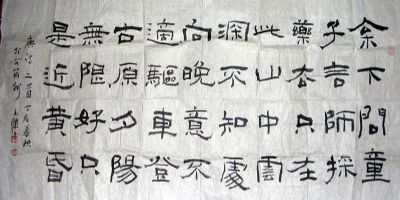 枀下問童
子言師採
藥去只在
此山中雲
深不知處
向晚意不
適驅車登
古原夕陽
無限好只
是近黃昏
唐詩二首丁亥